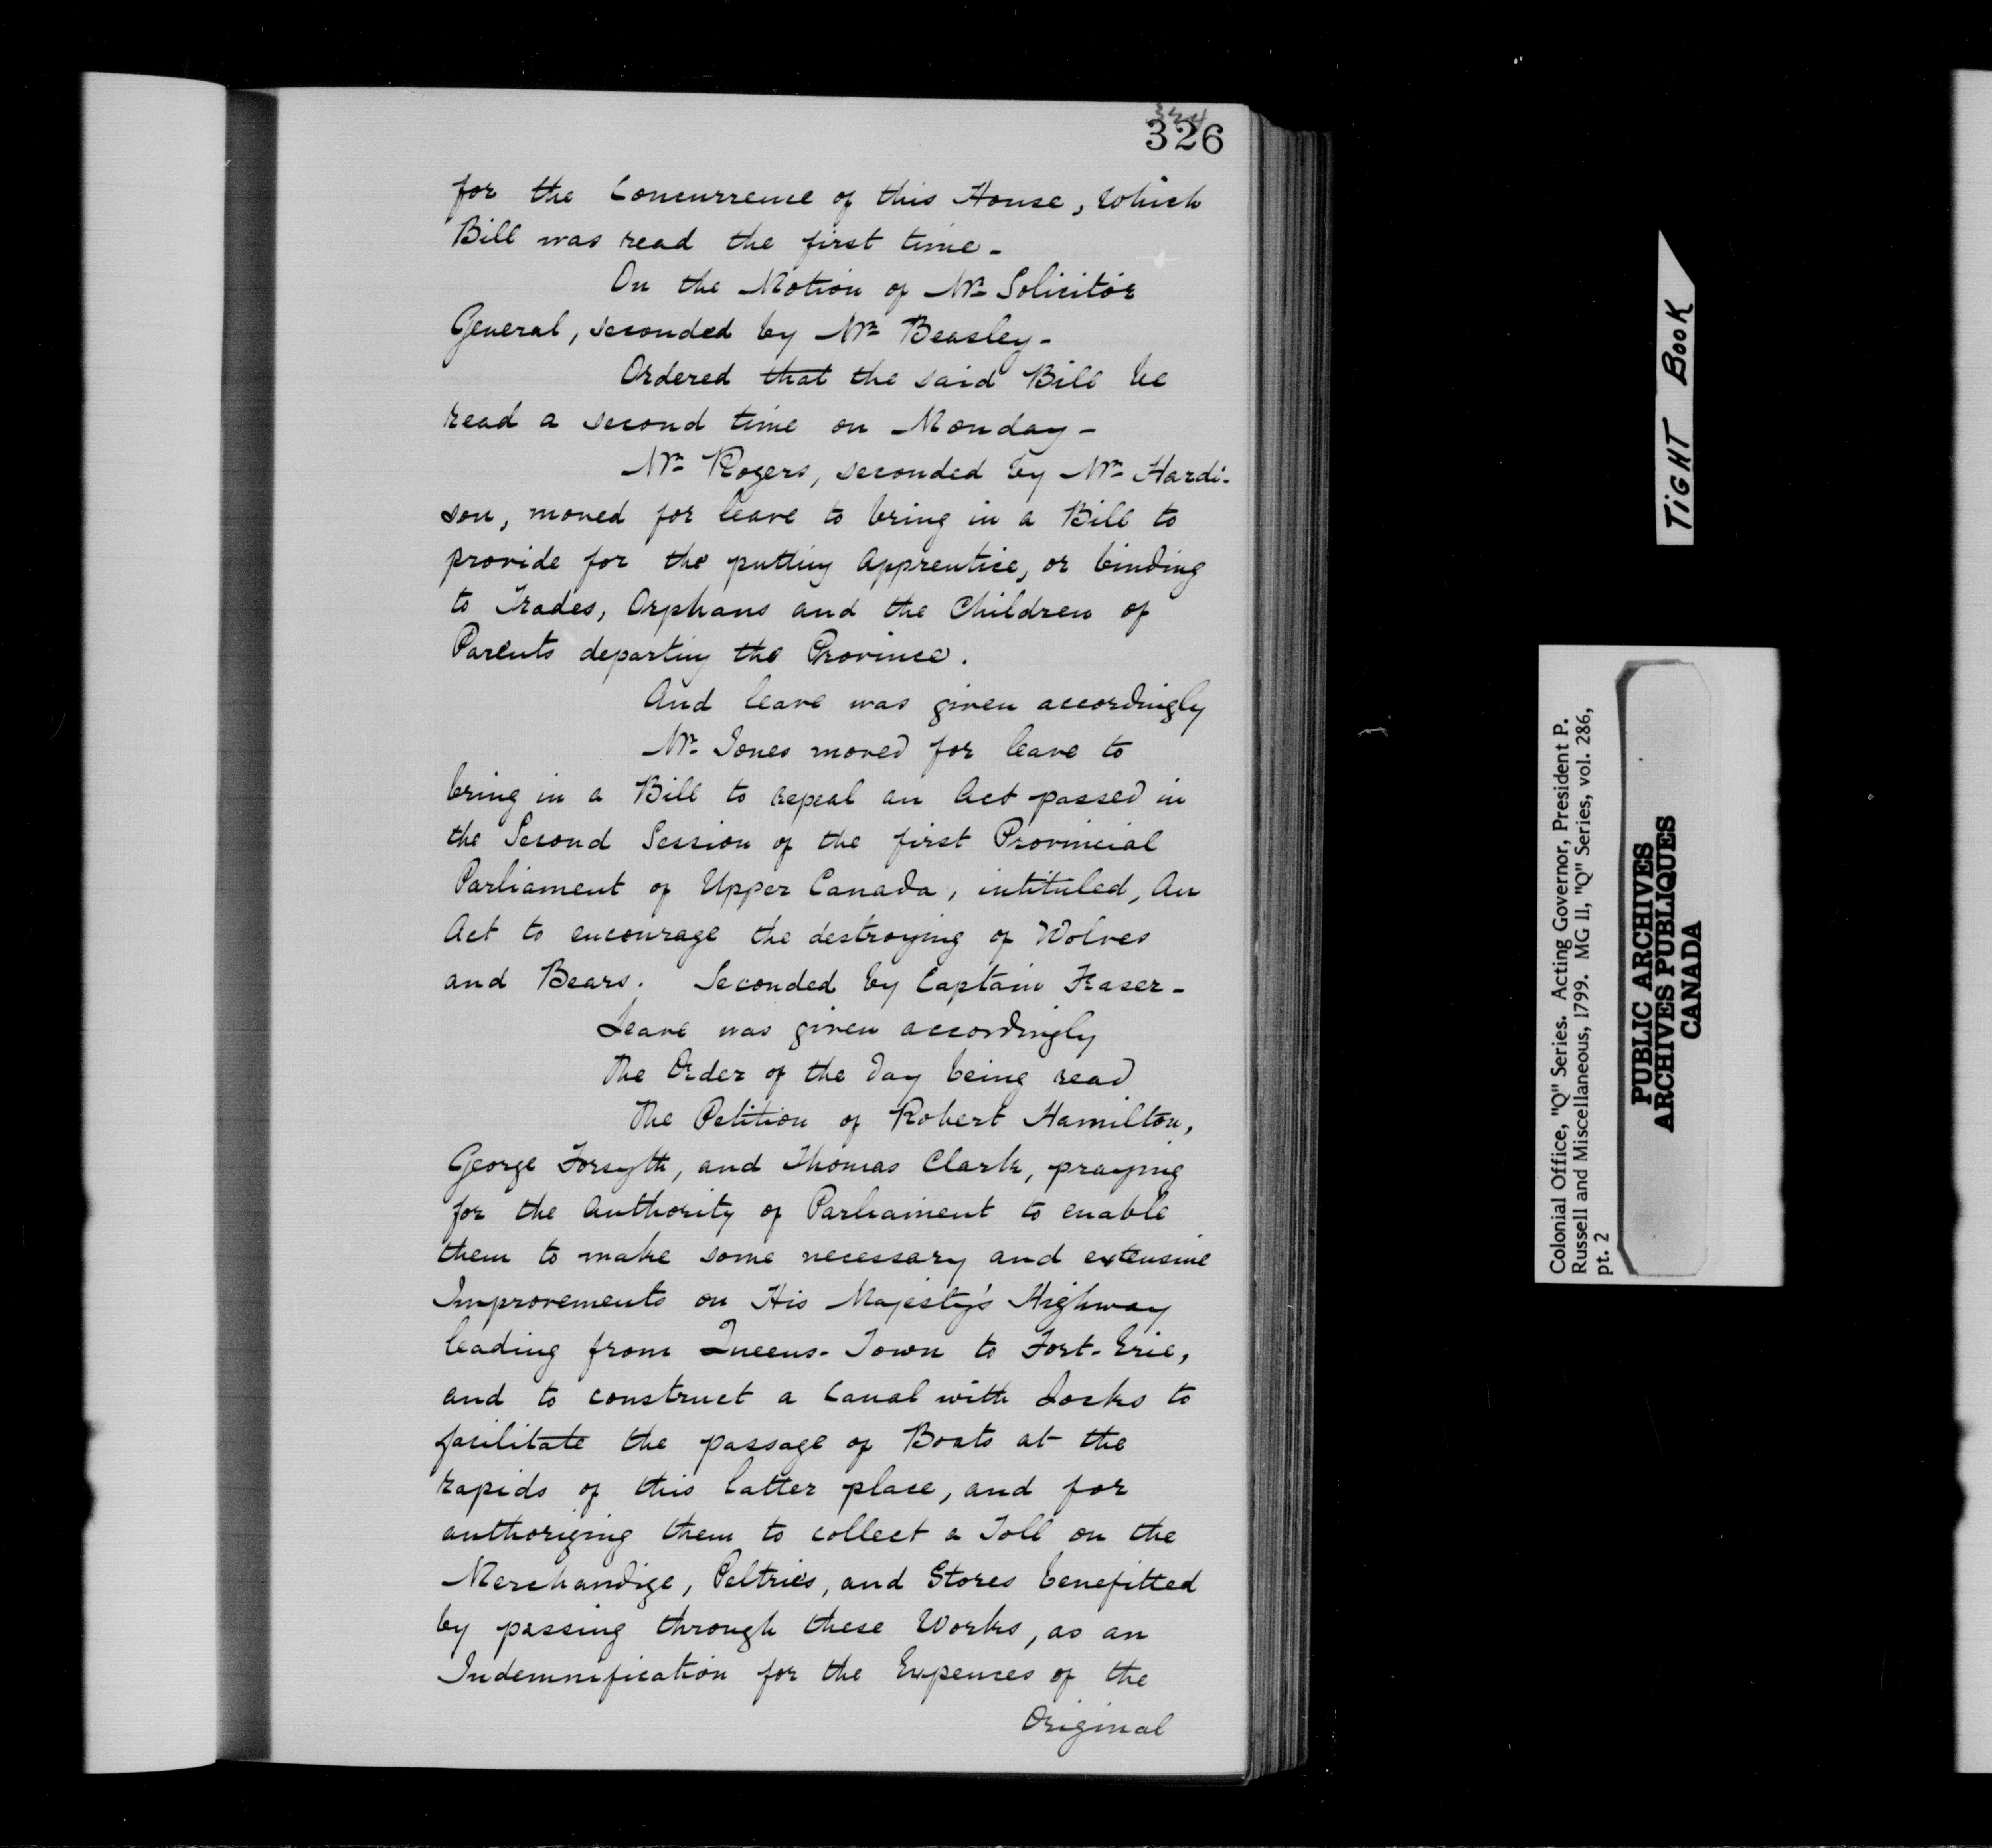 324
326
for the Concurrence of this House, which
Bill was read the first time -
On the Motion of Mr Solicitor
General, seconded by Mr Beasley -
Ordered that the said Bill be
read a second time on Monday -
Mr Rogers, seconded by Mr Hardi-
son, moved for leave to bring in a Bill to
provide for the putting Apprentice, or binding
to Trades, Orphans and the Children of
Parents departing the Province.
And leave was given accordingly
Mr Jones moved for leave to
bring in a Bill to repeal an Act passed in
the Second Session of the first Provincial
Parliament of Upper Canada, intituled, An
Act to encourage the destroying of Wolves
and Bears. Seconded by Captain Fraser -
Leave was given accordingly
The Order of the day being read
The Petition of Robert Hamilton,
George Forsyth, and Thomas Clark, praying
for the Authority of Parliament to enable
them to make some necessary and extensive
Improvements on His Majesty's Highway
leading from Queens-Town to Fort-Erie,
and to construct a Canal with Locks to
facilitate the passage of Boats at the
rapids of this latter place, and for
authorizing them to collect a Toll on the
Merchandize, Peltries, and Stores benefitted
by passing through these Works, as an
Indemnification for the Expences of the
Original
TIGHT BOOK
Colonial Office, "Q" Series. Acting Governor, President P.
Russell and Miscellaneous, 1799. MG 11, "Q" Series, vol. 286,
pt. 2
PUBLIC ARCHIVES
ARCHIVES PUBLIQUES
CANADA